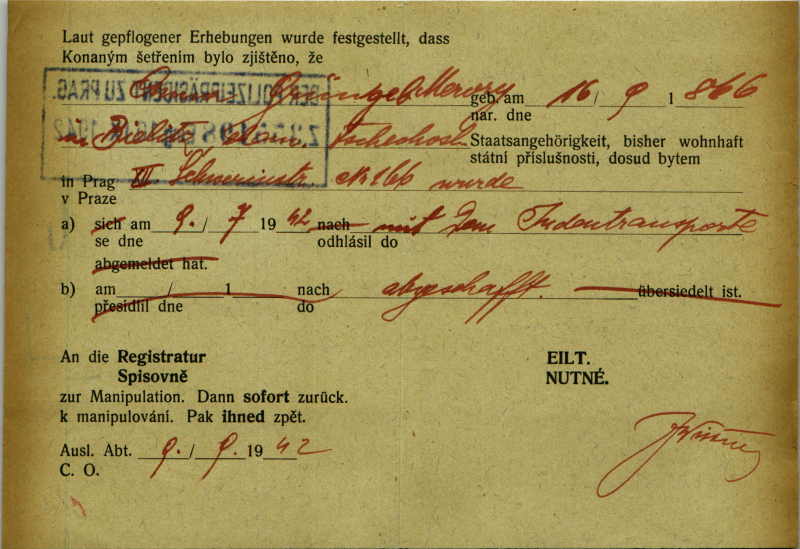 Laut gepflogener Erhebungen wurde festgestellt, dass
Konaným šetřením bylo zjištěno, že
DER POLIZEIPRÄSIDENT ZU PRAG.
geb. am 16/ 9 1 866
nar. dne
in Bielitz, Tschechosl. Staatsangehörigkeit, bisher wohnhaft
státní příslušnosti, dosud bytem
in Prag XII. Schwerinstr. N 166 wurde
v Praze
a) sich am 9. / 7 19 42 nach mit dem Judentransporte
se dne odhlásil do
abgemeldet hat.
b) am / 1 nach abgeschafft. übersiedelt ist.
přesídlil dne do
An die Registratur EILT.
Spisovně NUTNÉ.
zur Manipulation. Dann sofort zurück.
k manipulování. Pak ihned zpět.
Ausl. Abt. 9. / 9. 19 42
C. O.